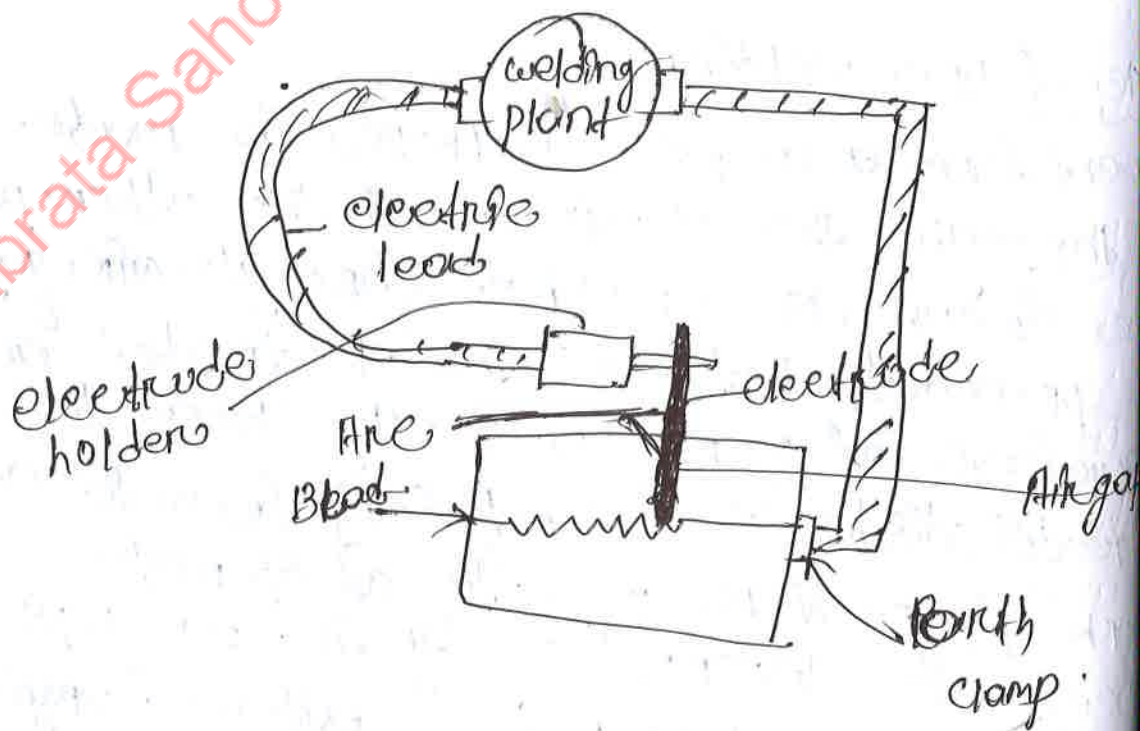 brata Saho
welding
plant
electric
lead
electrode
holder
electrode
Arc
Bead
Air gap
Earth
clamp